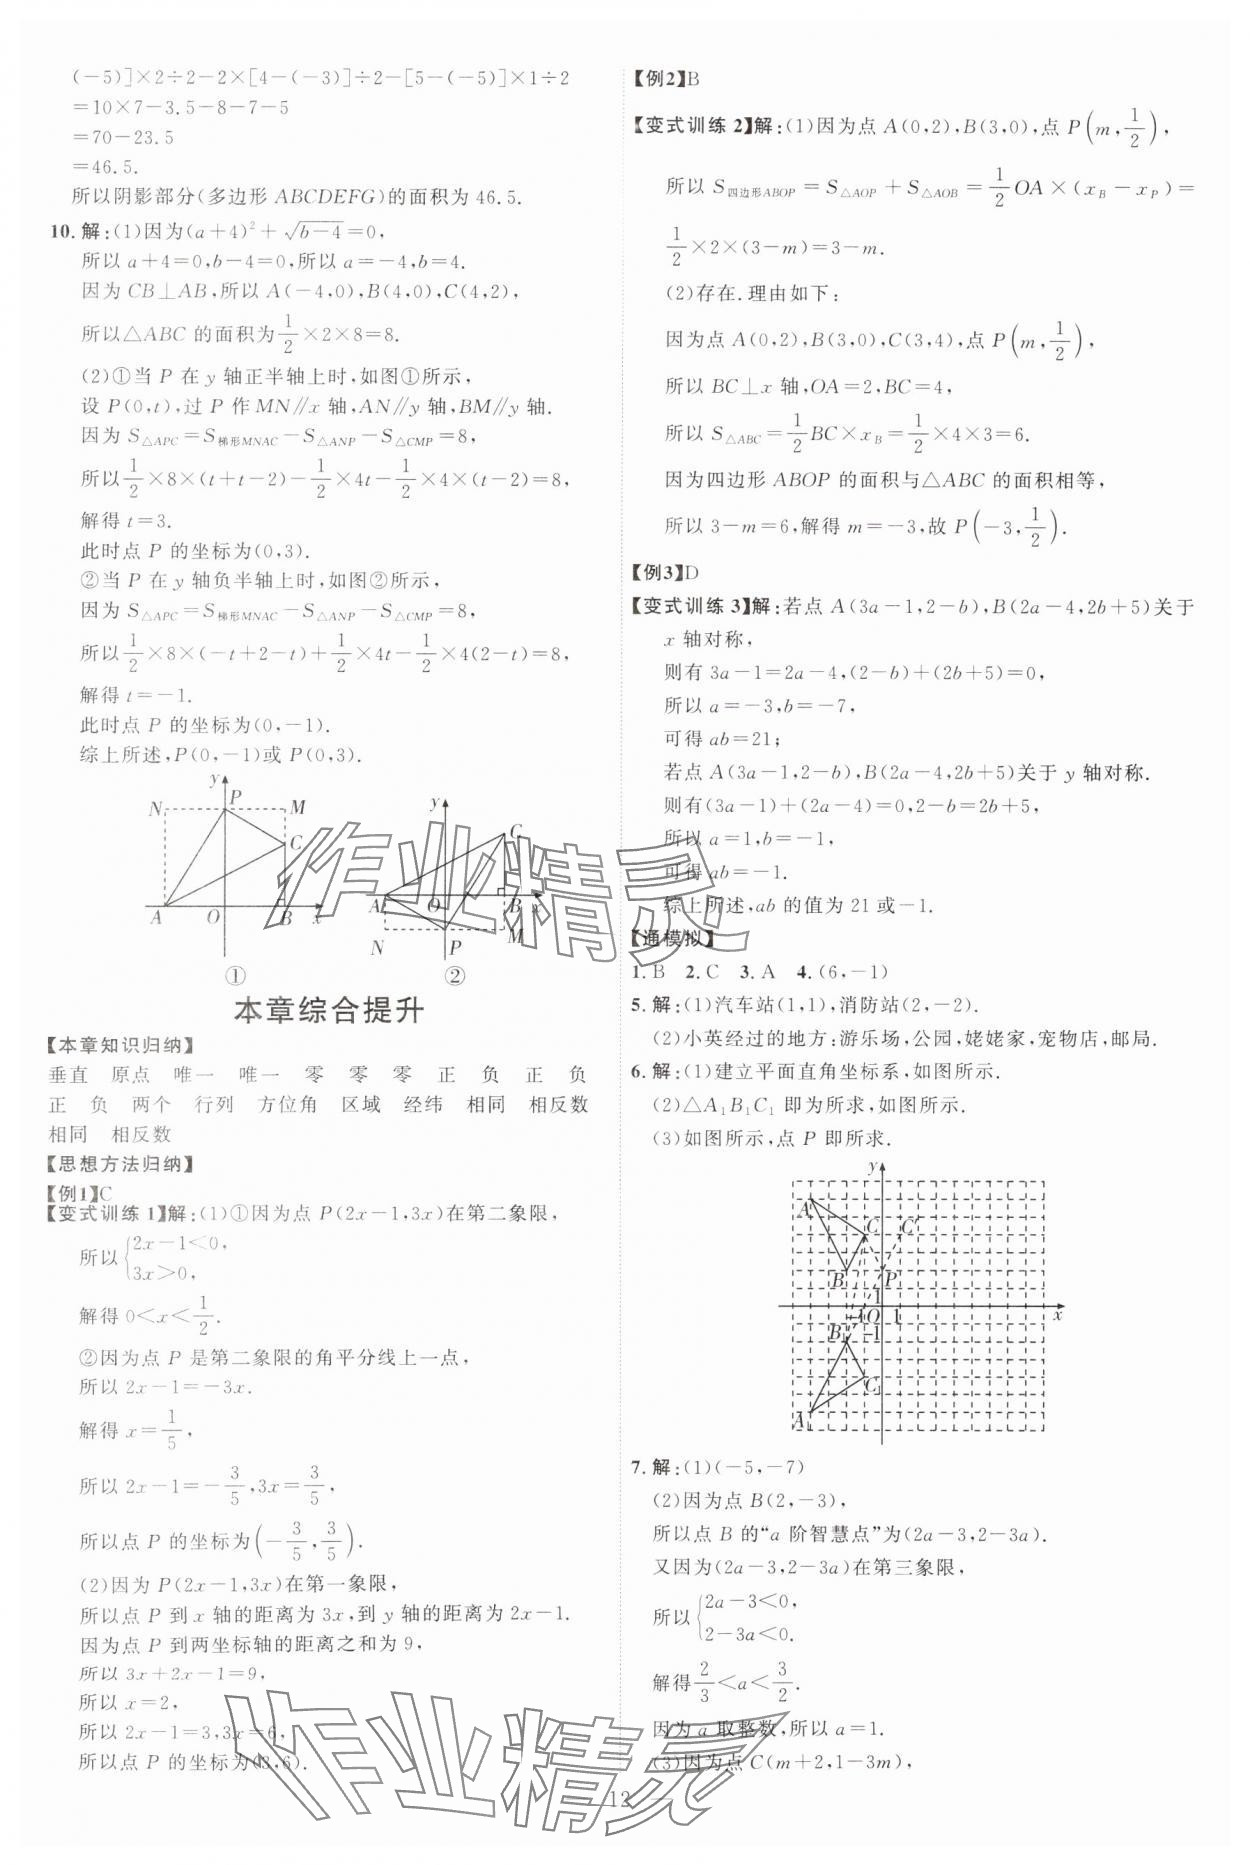 (－5)]×2÷2－2×[4－(－3)]÷2－[5－(－5)]×1÷2
＝10×7－3.5－8－7－5
＝70－23.5
＝46.5.
所以阴影部分(多边形 ABCDEFG)的面积为 46.5.
10. 解:(1)因为(a＋4)²＋√(b－4)＝0,
所以 a＋4＝0,b－4＝0,所以 a＝－4,b＝4.
因为 CB⊥AB,所以 A(－4,0),B(4,0),C(4,2),
所以△ABC 的面积为 1/2×2×8＝8.
(2)①当 P 在 y 轴正半轴上时,如图①所示,
设 P(0,t),过 P 作 MN∥x 轴,AN∥y 轴,BM∥y 轴.
因为 S△APC＝S梯形MNAC－S△ANP－S△CMP＝8,
所以 1/2×8×(t＋t－2)－1/2×4t－1/2×4×(t－2)＝8,
解得 t＝3.
此时点 P 的坐标为(0,3).
②当 P 在 y 轴负半轴上时,如图②所示,
因为 S△APC＝S梯形MNAC－S△ANP－S△CMP＝8,
所以 1/2×8×(－t＋2－t)＋1/2×4t－1/2×4(2－t)＝8,
解得 t＝－1.
此时点 P 的坐标为(0,－1).
综上所述,P(0,－1)或 P(0,3).
y
N P M
C
A O B x
①
y
C
A O B x
N P M
②
本章综合提升
【本章知识归纳】
垂直 原点 唯一 唯一 零 零 零 正 负 正 负
正 负 两个 行列 方位角 区域 经纬 相同 相反数
相同 相反数
【思想方法归纳】
【例1】C
【变式训练 1】解:(1)①因为点 P(2x－1,3x)在第二象限,
所以 { 2x－1＜0,
3x＞0,
解得 0＜x＜1/2.
②因为点 P 是第二象限的角平分线上一点,
所以 2x－1＝－3x.
解得 x＝1/5,
所以 2x－1＝－3/5,3x＝3/5,
所以点 P 的坐标为(－3/5,3/5).
(2)因为 P(2x－1,3x)在第一象限,
所以点 P 到 x 轴的距离为 3x,到 y 轴的距离为 2x－1.
因为点 P 到两坐标轴的距离之和为 9,
所以 3x＋2x－1＝9,
所以 x＝2,
所以 2x－1＝3,3x＝6,
所以点 P 的坐标为(3,6).
【例2】B
【变式训练 2】解:(1)因为点 A(0,2),B(3,0),点 P(m,1/2),
所以 S四边形ABOP＝S△AOP＋S△AOB＝1/2 OA×(xB－xP)＝
1/2×2×(3－m)＝3－m.
(2)存在.理由如下:
因为点 A(0,2),B(3,0),C(3,4),点 P(m,1/2),
所以 BC⊥x 轴,OA＝2,BC＝4,
所以 S△ABC＝1/2 BC×xB＝1/2×4×3＝6.
因为四边形 ABOP 的面积与△ABC 的面积相等,
所以 3－m＝6,解得 m＝－3,故 P(－3,1/2).
【例3】D
【变式训练 3】解:若点 A(3a－1,2－b),B(2a－4,2b＋5)关于
x 轴对称,
则有 3a－1＝2a－4,(2－b)＋(2b＋5)＝0,
所以 a＝－3,b＝－7,
可得 ab＝21;
若点 A(3a－1,2－b),B(2a－4,2b＋5)关于 y 轴对称.
则有(3a－1)＋(2a－4)＝0,2－b＝2b＋5,
所以 a＝1,b＝－1,
可得 ab＝－1.
综上所述,ab 的值为 21 或－1.
【通模拟】
1. B 2. C 3. A 4. (6,－1)
5. 解:(1)汽车站(1,1),消防站(2,－2).
(2)小英经过的地方:游乐场,公园,姥姥家,宠物店,邮局.
6. 解:(1)建立平面直角坐标系,如图所示.
(2)△A₁B₁C₁ 即为所求,如图所示.
(3)如图所示,点 P 即所求.
y
A
C C′
B P
1
－1 O 1 x
B₁ －1
C₁
A₁
7. 解:(1)(－5,－7)
(2)因为点 B(2,－3),
所以点 B 的“a 阶智慧点”为(2a－3,2－3a).
又因为(2a－3,2－3a)在第三象限,
所以 { 2a－3＜0,
2－3a＜0.
解得 2/3＜a＜3/2.
因为 a 取整数,所以 a＝1.
(3)因为点 C(m＋2,1－3m),
— 12 —
作业精灵
作业精灵